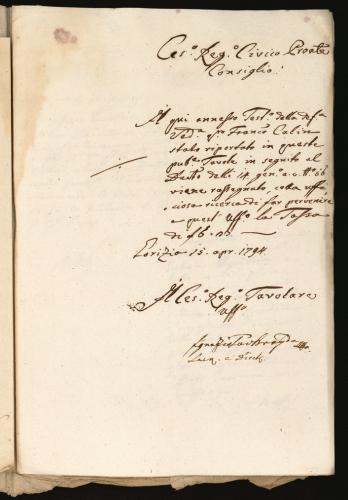 Ces.º Reg.º Civico Proāle
Consiglio!
Il qui annesso Test.º della
Ved.ª Franc.º Calin
stato riportato in queste
pub.e Tavole in seguito al
Decreto delli 14. gen.º a. c. N.º 66
viene rassegnato, colla uffi-
ciosa ricerca di far pervenire
a quest' Uff.º la Tassa
de f.
Gorizia 15. apr. 1794.
Il Ces.º Reg.º Tavolare
Uff.º